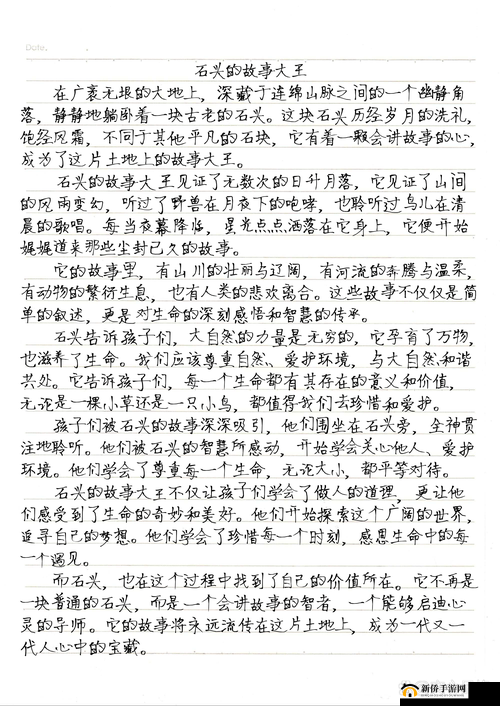 Date.
石兴的故事大王
在广袤无垠的大地上，深藏于连绵山脉之间的一个幽静角
落，静静地躺卧着一块古老的石兴。这块石头历经岁月的洗礼，
饱经风霜，不同于其他平凡的石块，它有着一颗会讲故事的心，
成为了这片土地上的故事大王。
石兴的故事大王见证了无数次的日升月落，它见证了山间
的风雨变幻，听过了野兽在月夜下的咆哮，也聆听过鸟儿在清
晨的歌唱。每当夜幕降临，星光点点洒落在它身上，它便开始
娓娓道来那些尘封已久的故事。
它的故事里，有山川的壮丽与辽阔，有河流的奔腾与温柔，
有动物的繁衍生息，也有人类的悲欢离合。这些故事不仅仅是简
单的叙述，更是对生命的深刻感悟和智慧的传承。
石兴告诉孩子们，大自然的力量是无穷的，它孕育了万物，
也滋养了生命。我们应该尊重自然、爱护环境，与大自然和谐
共处。它告诉孩子们，每一个生命都有其存在的意义和价值，
无论是一棵小草还是一只小鸟，都值得我们去珍惜和爱护。
孩子们被石兴的故事深深吸引，他们围坐在石兴旁，全神贯
注地聆听。他们被石兴的智慧所感动，开始学会关心他人、爱护
环境。他们学会了尊重每一个生命，无论大小，都平等对待。
石兴的故事大王不仅让孩子们学会了做人的道理，更让他
们感受到了生命的奇妙和美好。他们开始探索这个广阔的世界，
追寻自己的梦想。他们学会了珍惜每一个时刻，感恩生命中的每
一个遇见。
而石兴，也在这个过程中找到了自己的价值所在。它不再是
一块普通的石头，而是一个会讲故事的智者，一个能够启迪心
灵的导师。它的故事将永远流传在这片土地上，成为一代又一
代人心中的宝藏。
新侨手游网